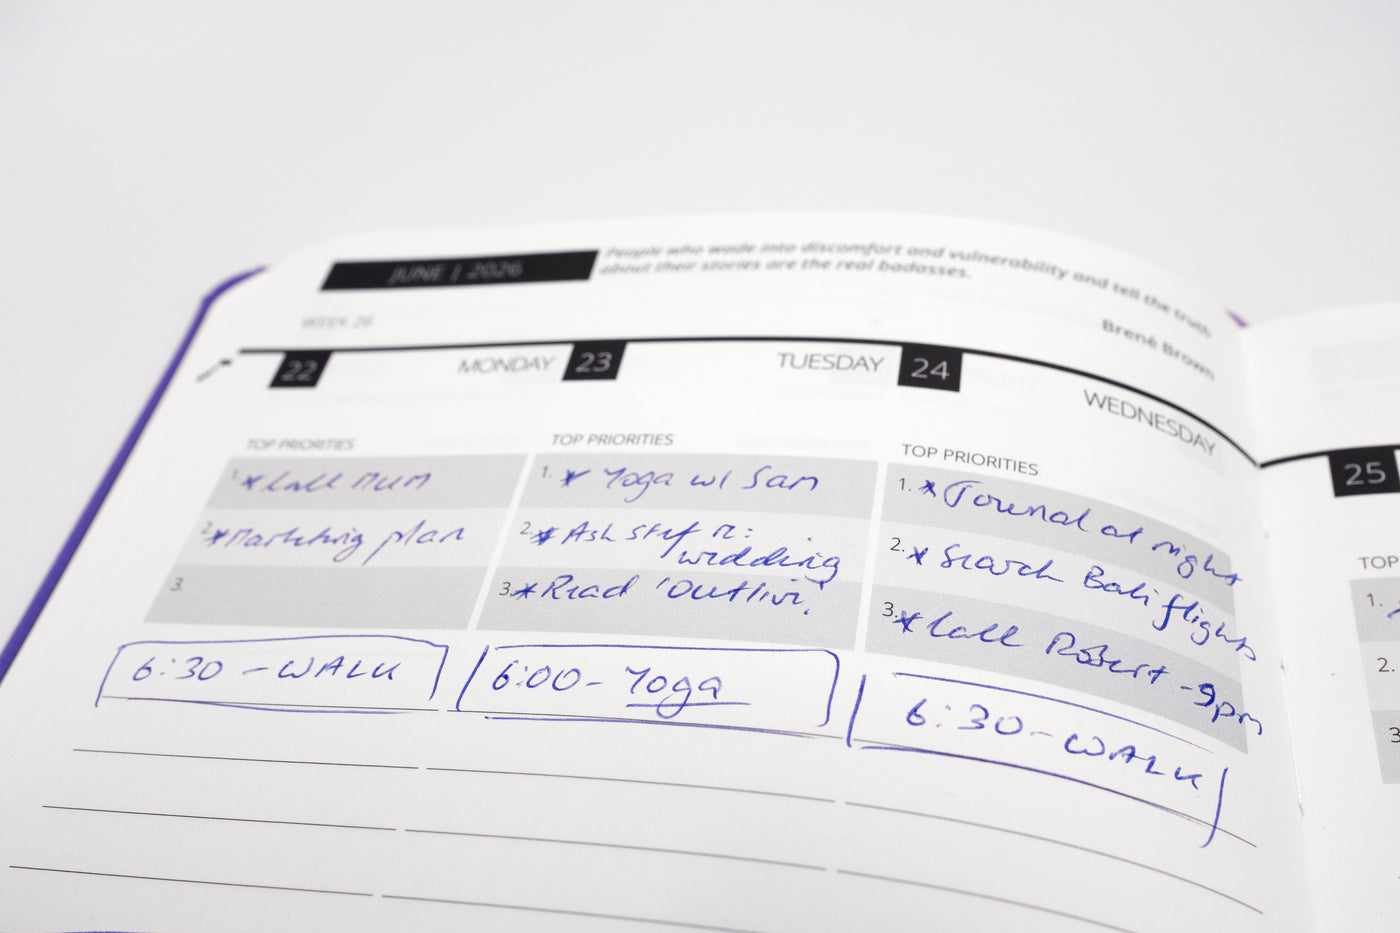 JUNE | 2026
People who wade into discomfort and vulnerability and tell the truth
about their stories are the real badasses.
Brené Brown
WEEK 26
22 MONDAY
TOP PRIORITIES
1. * Call Mum
2. * Marketing plan
3.
6:30 - WALK
23 TUESDAY
TOP PRIORITIES
1. * Yoga w/ Sam
2. * Ask Stef re:
wedding
3. * Read 'Outlive'
6:00 - Yoga
24 WEDNESDAY
TOP PRIORITIES
1. * Journal at night
2. * Search Bali flights
3. * Call Robert - 9pm
6:30 - WALK
25
TOP
1.
2.
3